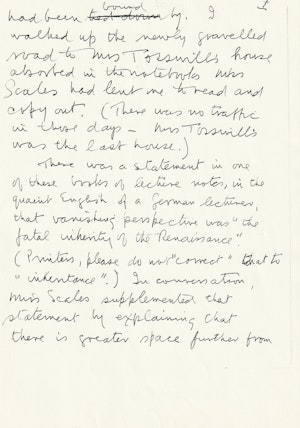 bound I
had been tied down by. I
walked up the newly gravelled
road to Mrs Tosswill's house
absorbed in the notebooks Miss
Scales had lent me to read and
copy out. (There was no traffic
in those days – Mrs Tosswill's
was the last house.)
There was a statement in one
of these books of lecture notes, in the
quaint English of a German lecturer,
that vanishing perspective was "the
fatal inherity of the Renaissance".
(Printers, please do not "correct" that to
"inheritance".) In conversation,
Miss Scales supplemented that
statement by explaining that
there is greater space further from